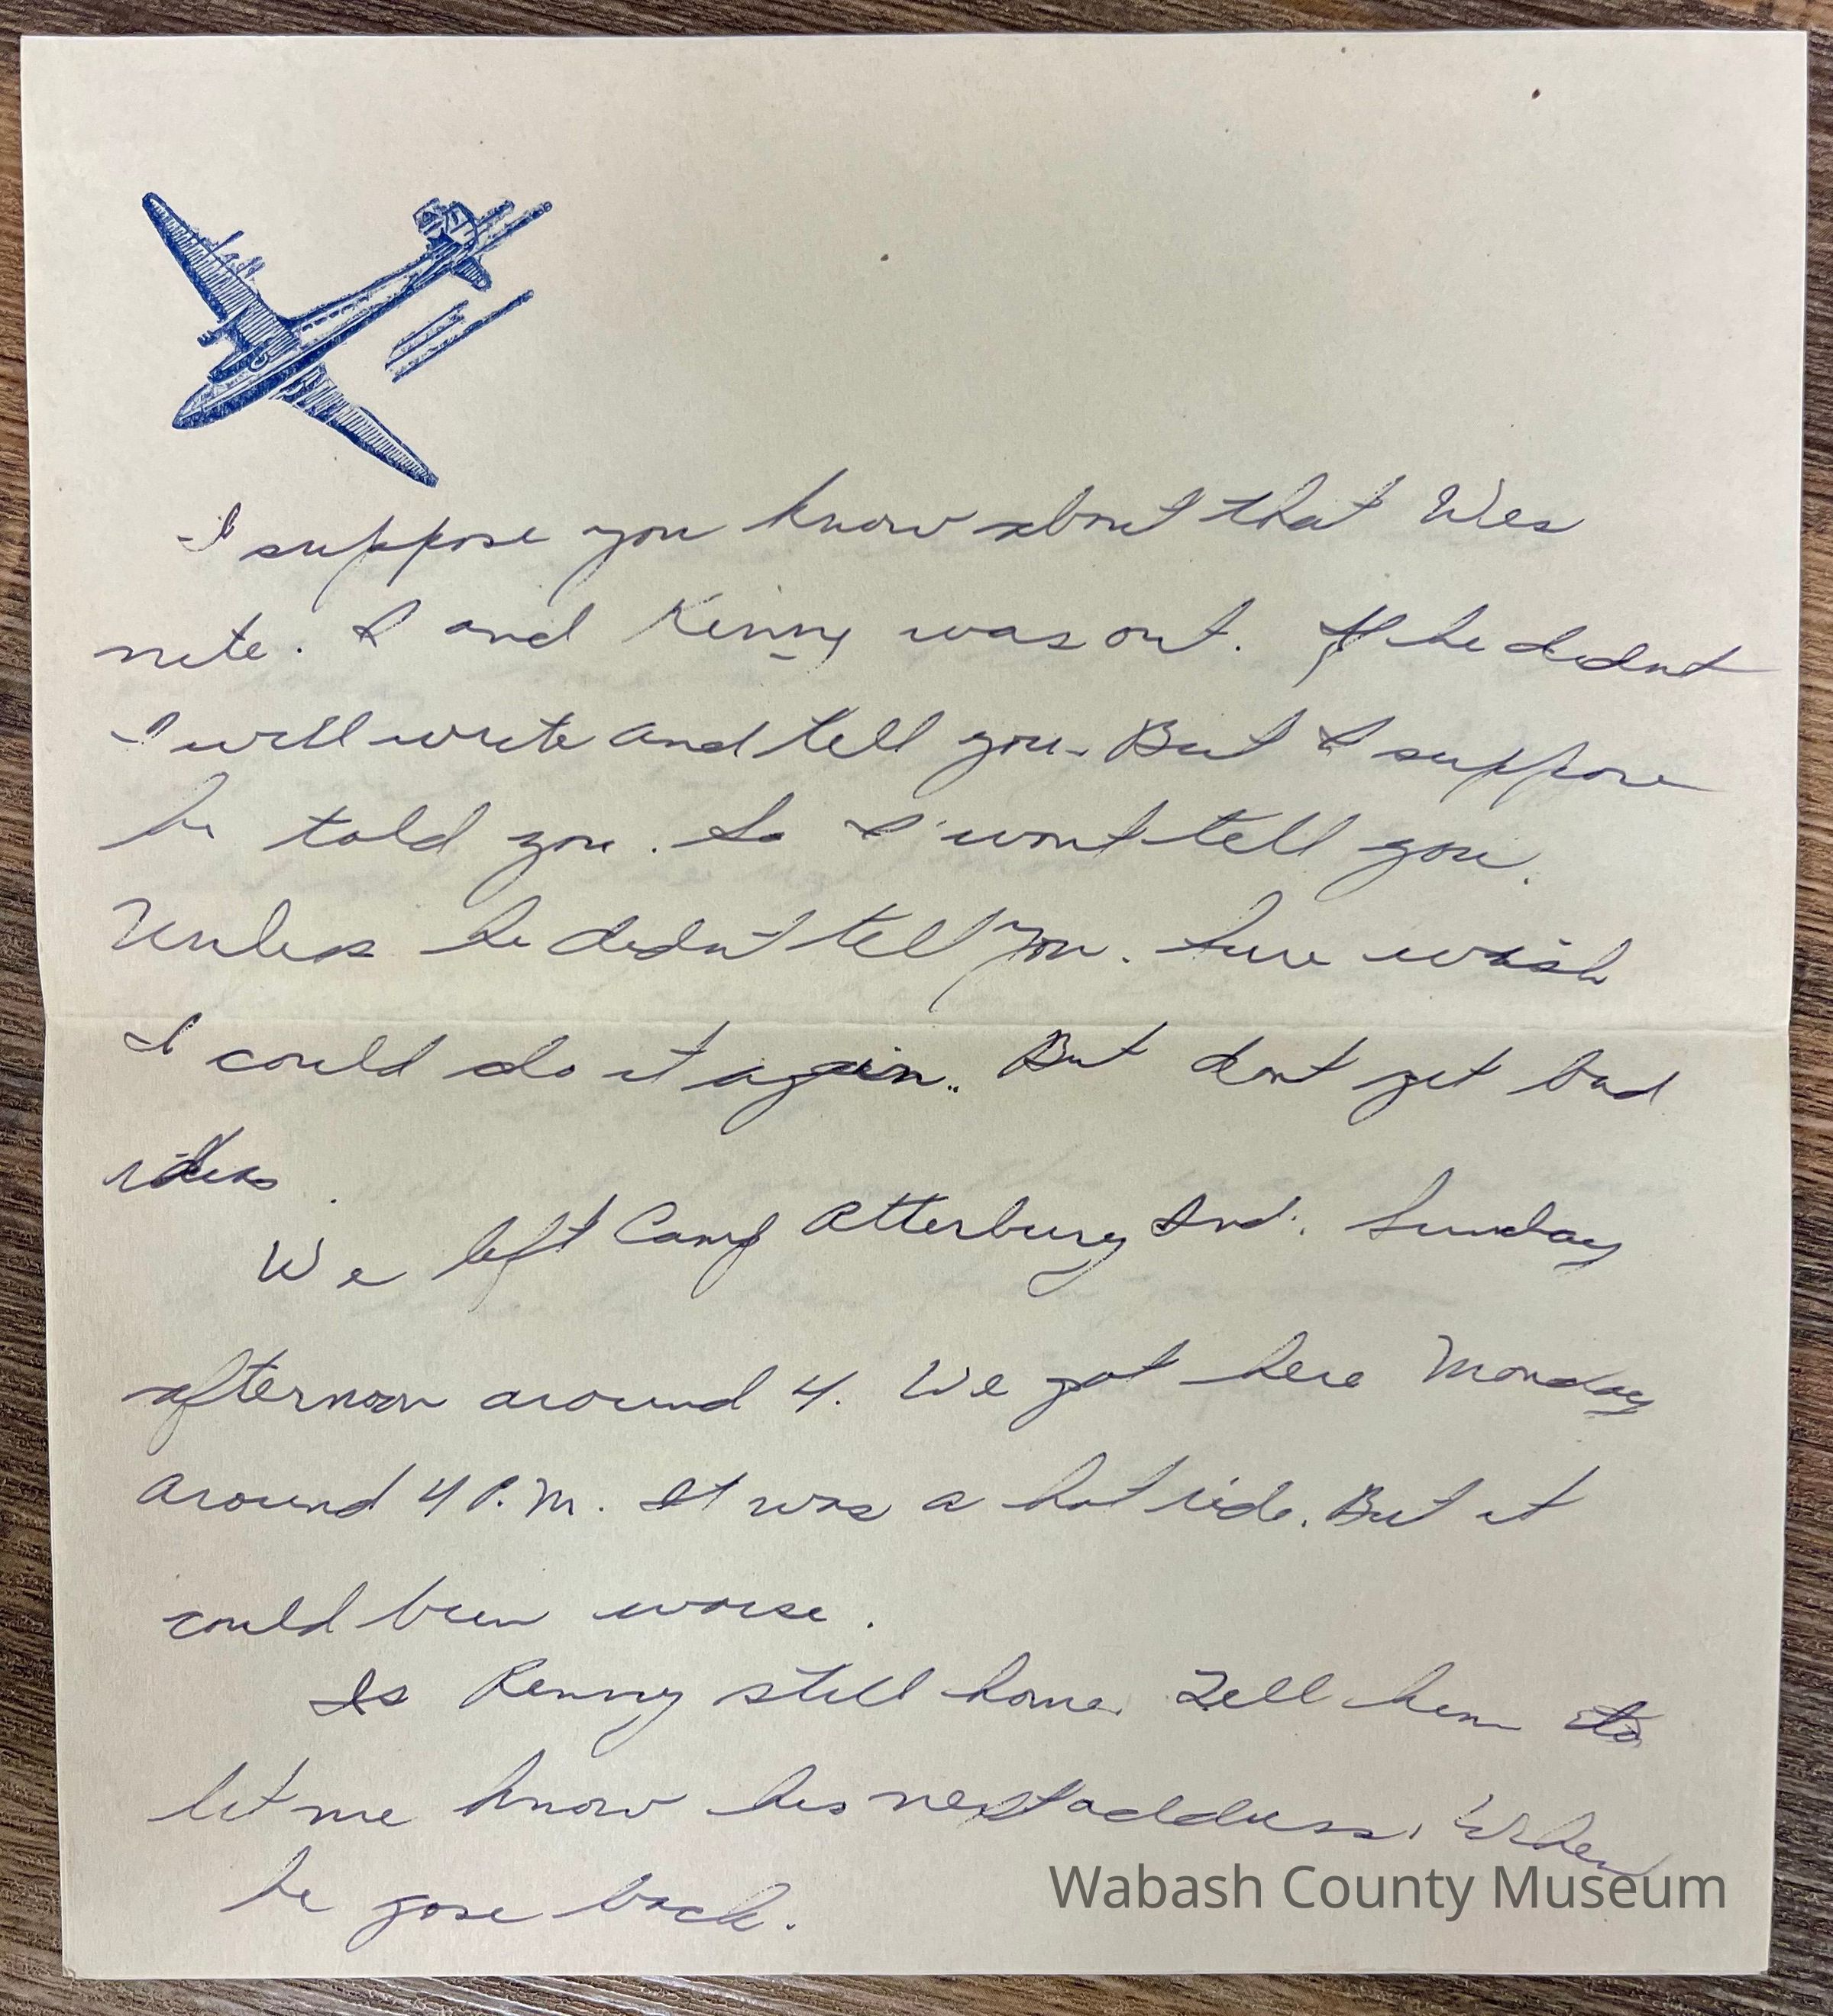 I suppose you know about that Wes
nite. I and Kenny was out. If he didnt
I will write and tell you. But I suppose
he told you. So I wont tell you.
Unless he didn't tell you. Sure wish
I could do it again.. But dont get bad
ideas.
We left Camp Atterbury Ind. Sunday
afternoon around 4. We got here Monday
around 4 P.M. It was a hot ride. But it
could been worse.
Is Kenny still home. Tell him to
let me know his next address. When
he gose back.
Wabash County Museum